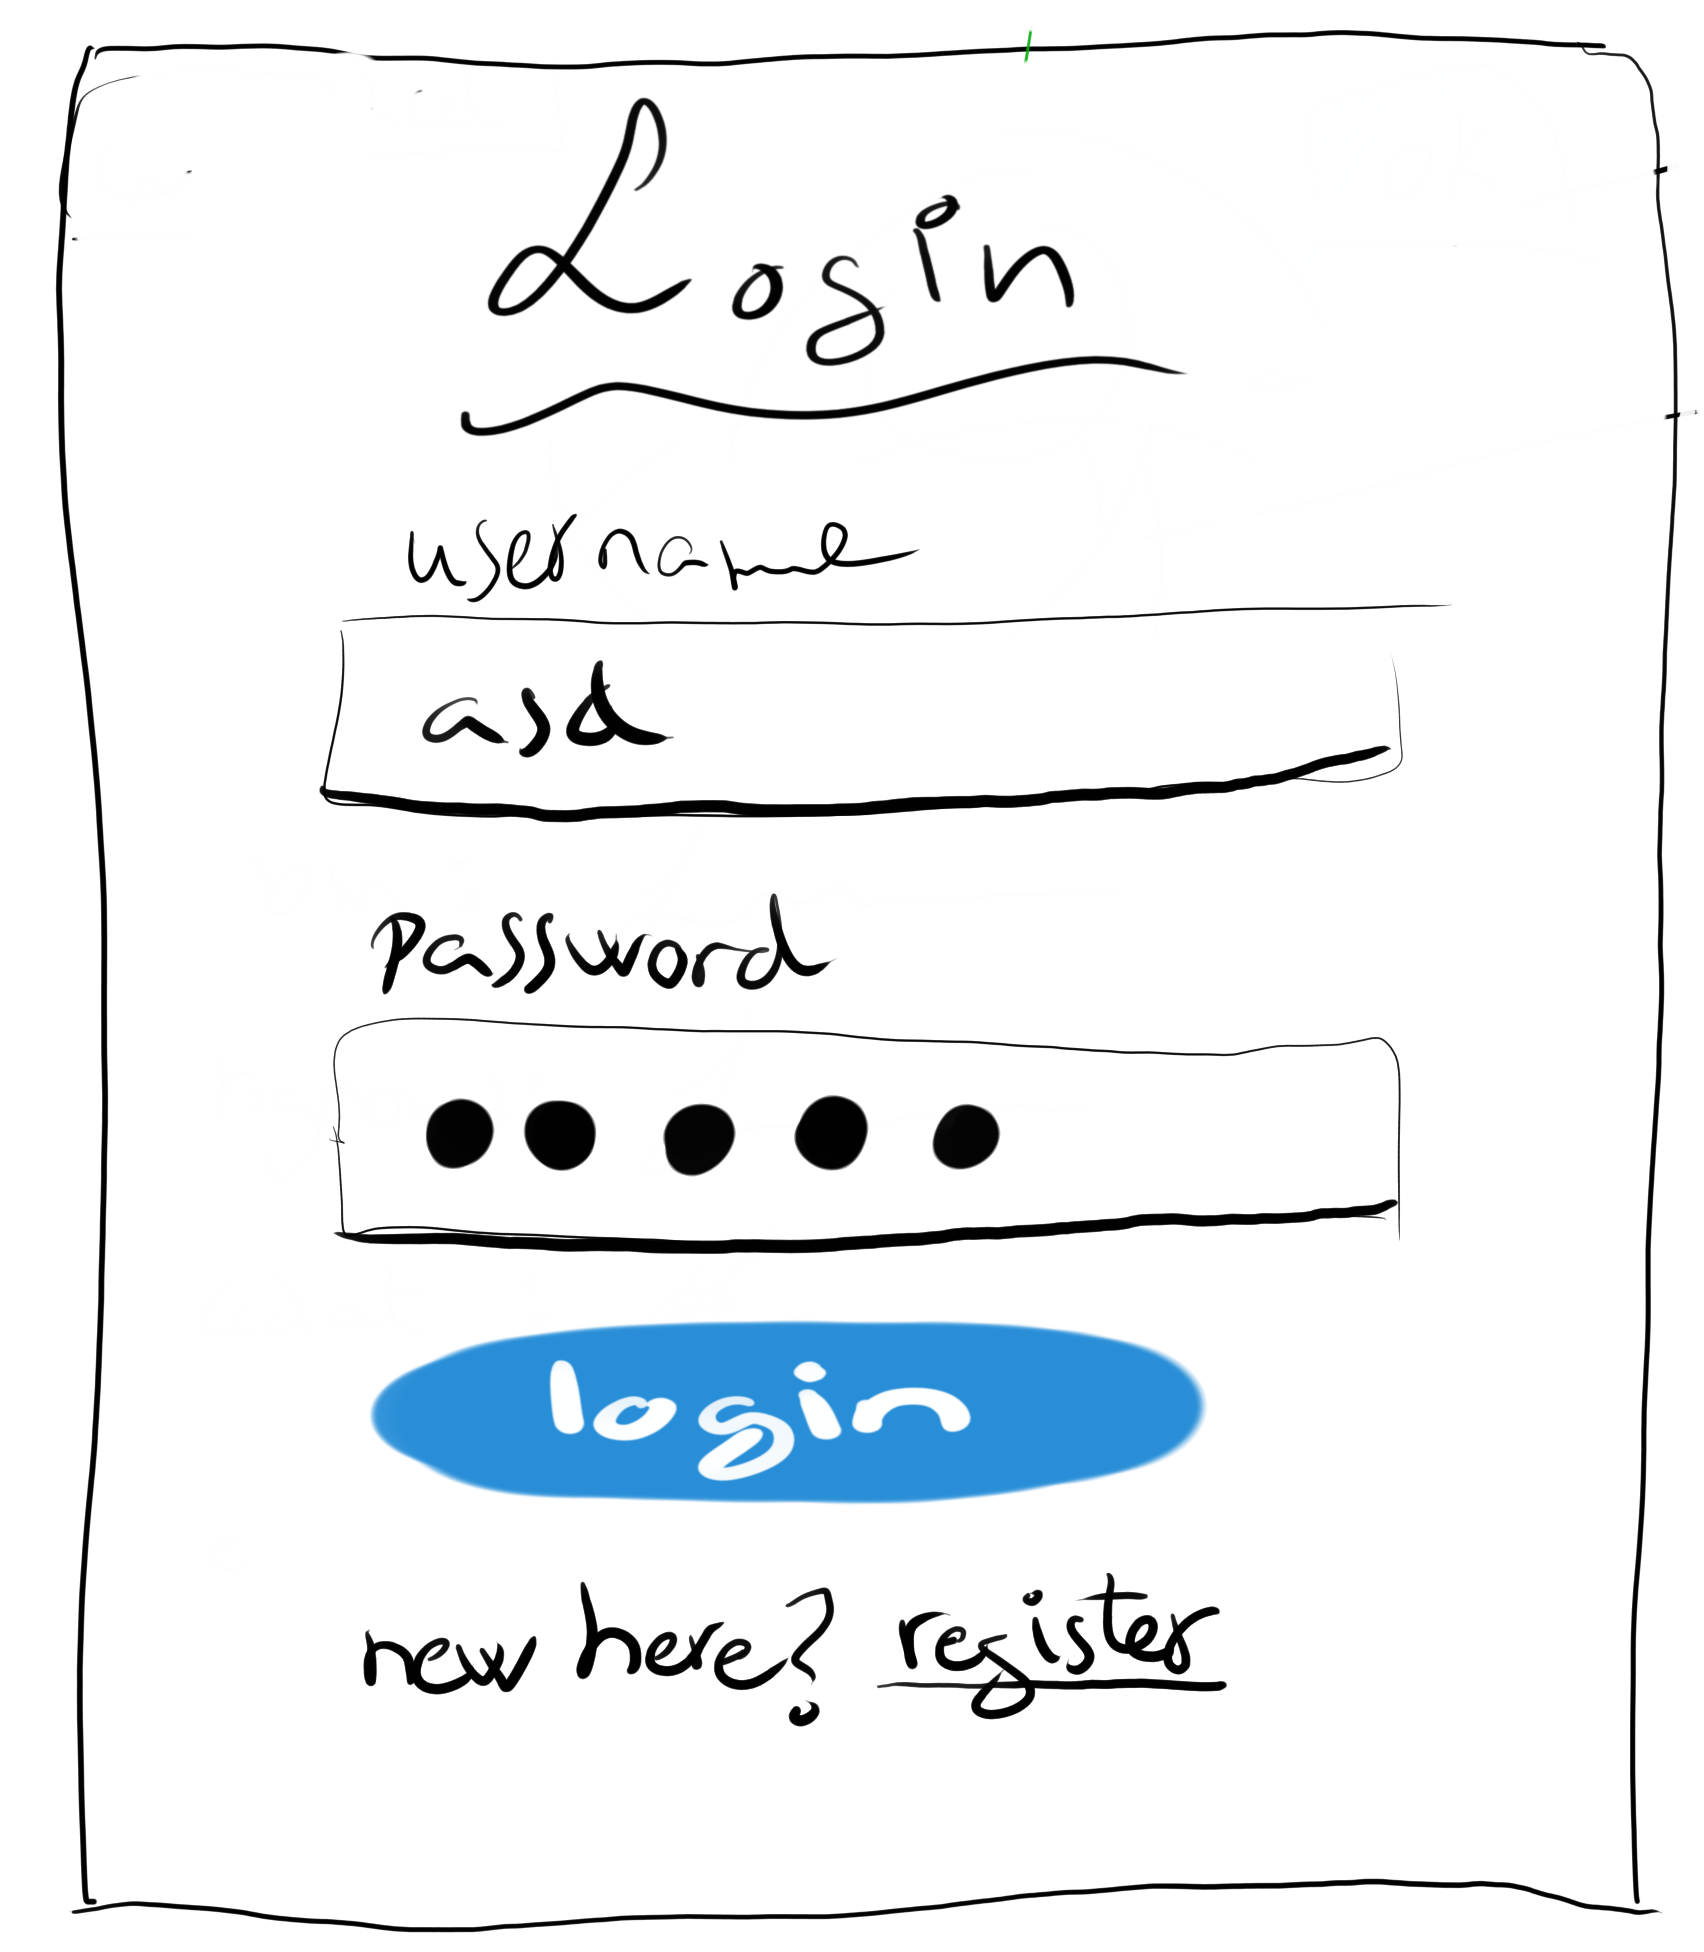 Login
username
asd
Password
login
new here? register